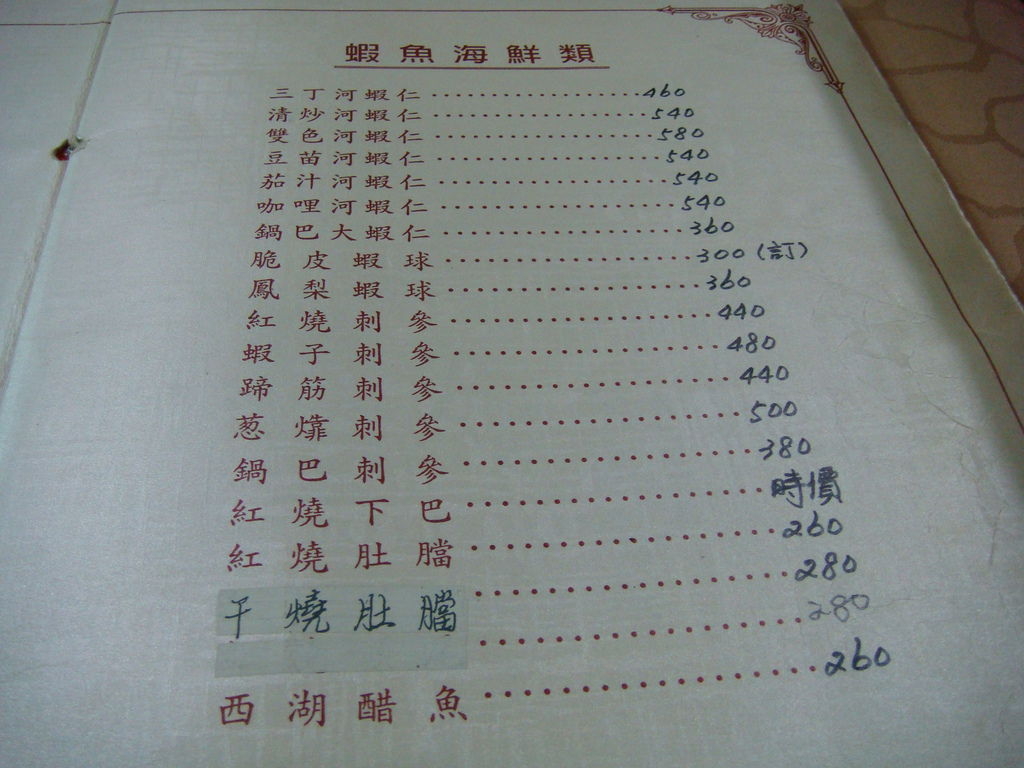 蝦魚海鮮類
三丁河蝦仁····················460
清炒河蝦仁····················540
雙色河蝦仁····················580
豆苗河蝦仁····················540
茄汁河蝦仁····················540
咖哩河蝦仁····················540
鍋巴大蝦仁····················360
脆皮蝦球····················300(訂)
鳳梨蝦球····················360
紅燒刺參····················440
蝦子刺參····················480
蹄筋刺參····················440
葱㸆刺參····················500
鍋巴刺參····················380
紅燒下巴····················時價
紅燒肚𦡁····················260
干燒肚𦡁····················280
····················280
西湖醋魚····················260